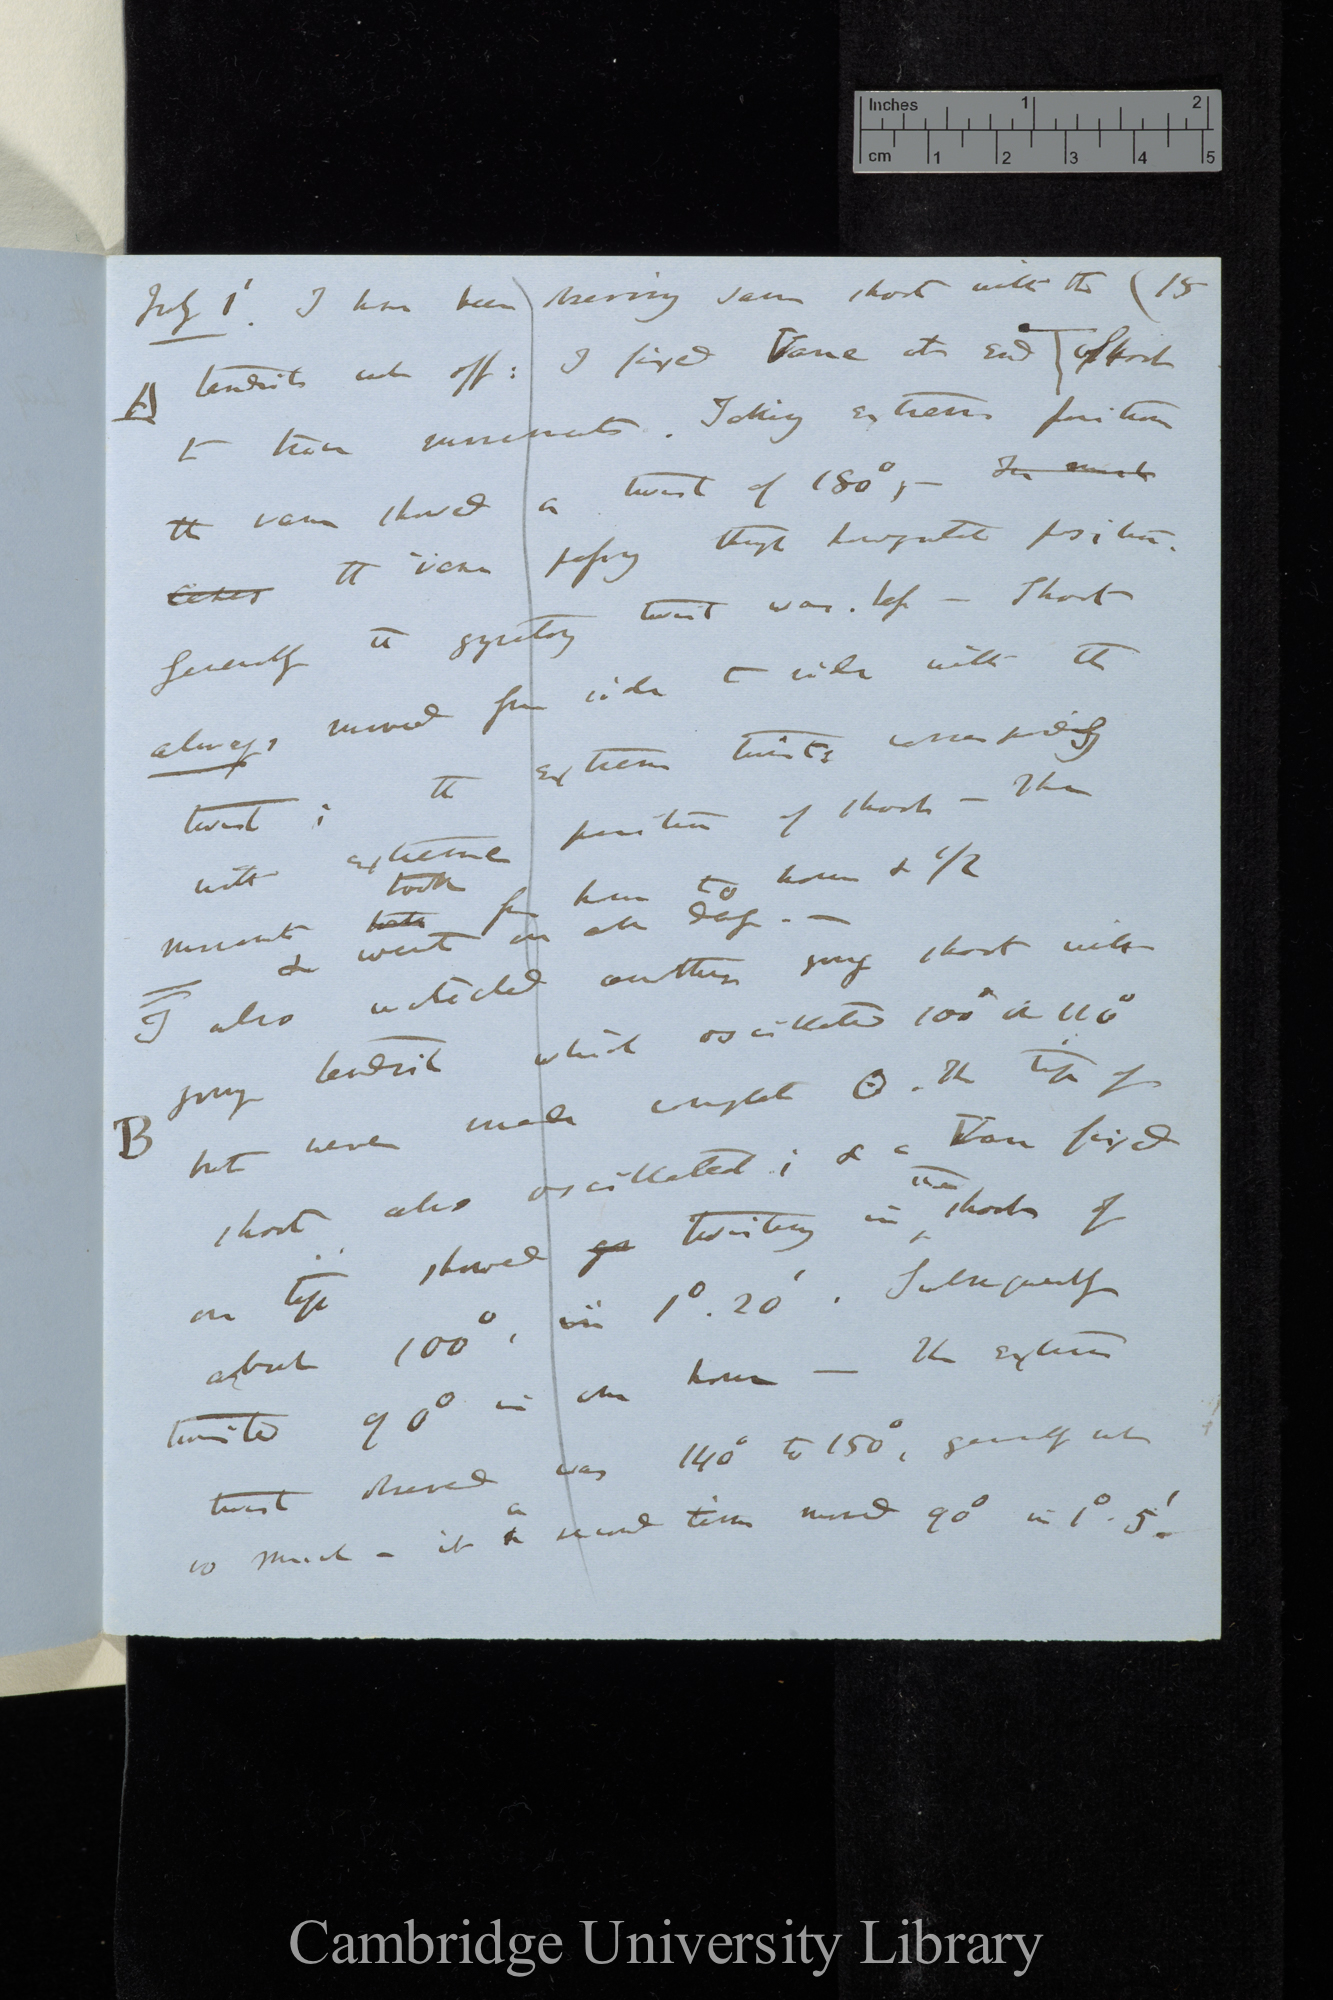 Inches 1 2
cm 1 2 3 4 5
July 1'. I have been observing same shoot with the (15
A tendrils cut off: I fixed Vane at end of shoot
to trace movements. Taking extreme positions
the vane showed a twist of 180°, —
the vane passing through position.
Generally the gyratory twist was less — Shoot
always moved from side to side with the
twist; the extreme twists corresponding
with extreme position of shoot — These
movements took from hour to hour & 1/2
& went on all day. —
I also watched another young shoot with
young tendril which oscillated 100° or 110°
B but never made complete O. The tip of
shoot also oscillated; & a Vane fixed
on tip showed twisting in the shoots of
about 100°, in 1°. 20'. Subsequently
twisted 90° in one hour — The extreme
twist observed was 140° to 150°, generally not
so much — it a second time moved 90° in 1°. 5'.
Cambridge University Library